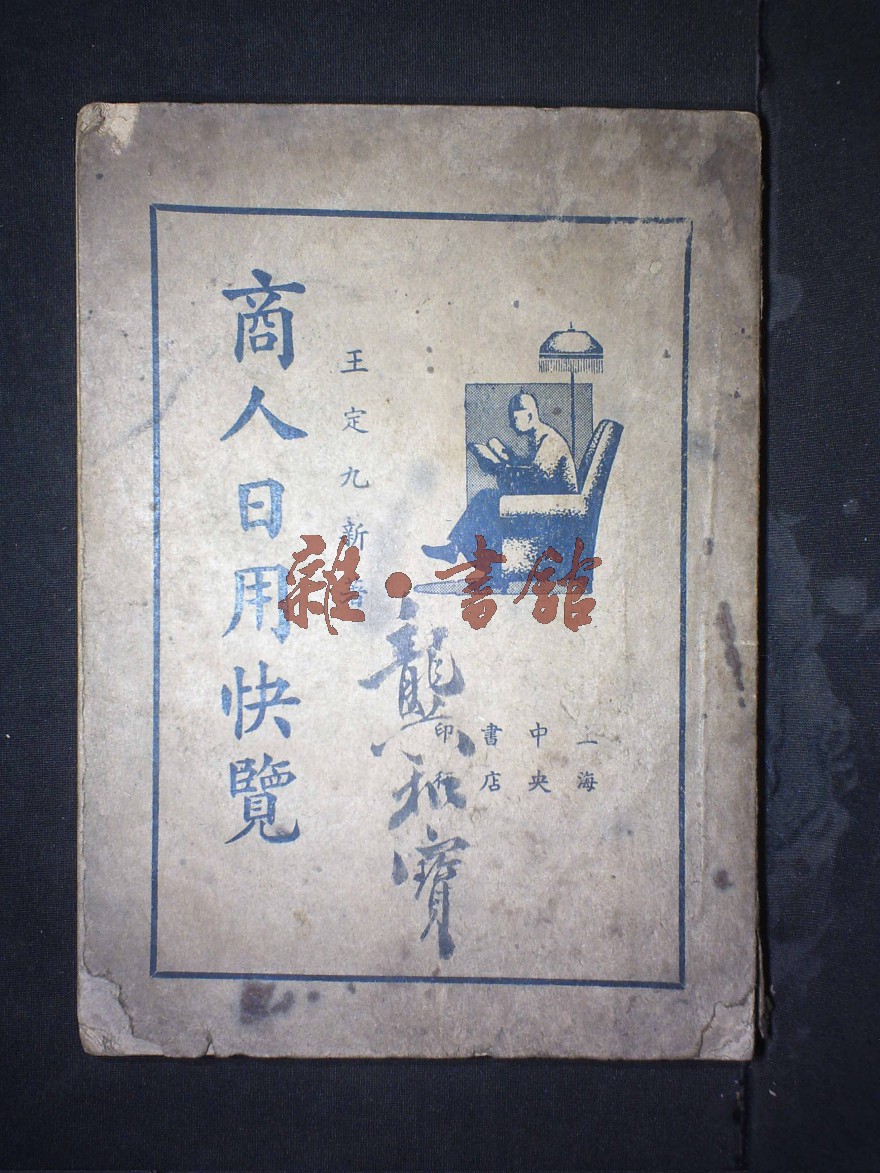 上海
中央
書店
印行
龔和寶
王定九新著
商人日用快覽
雜·書館